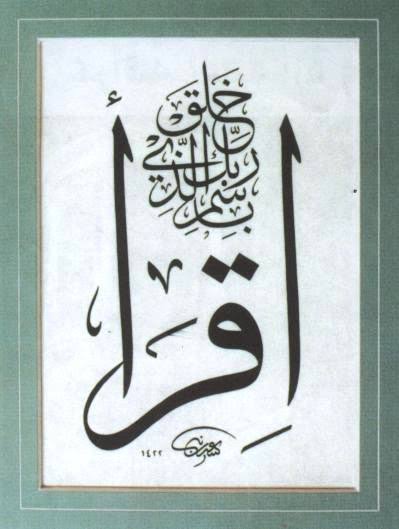 اقرأ
باسم
ربك الذي
خلق
١٤٢٢